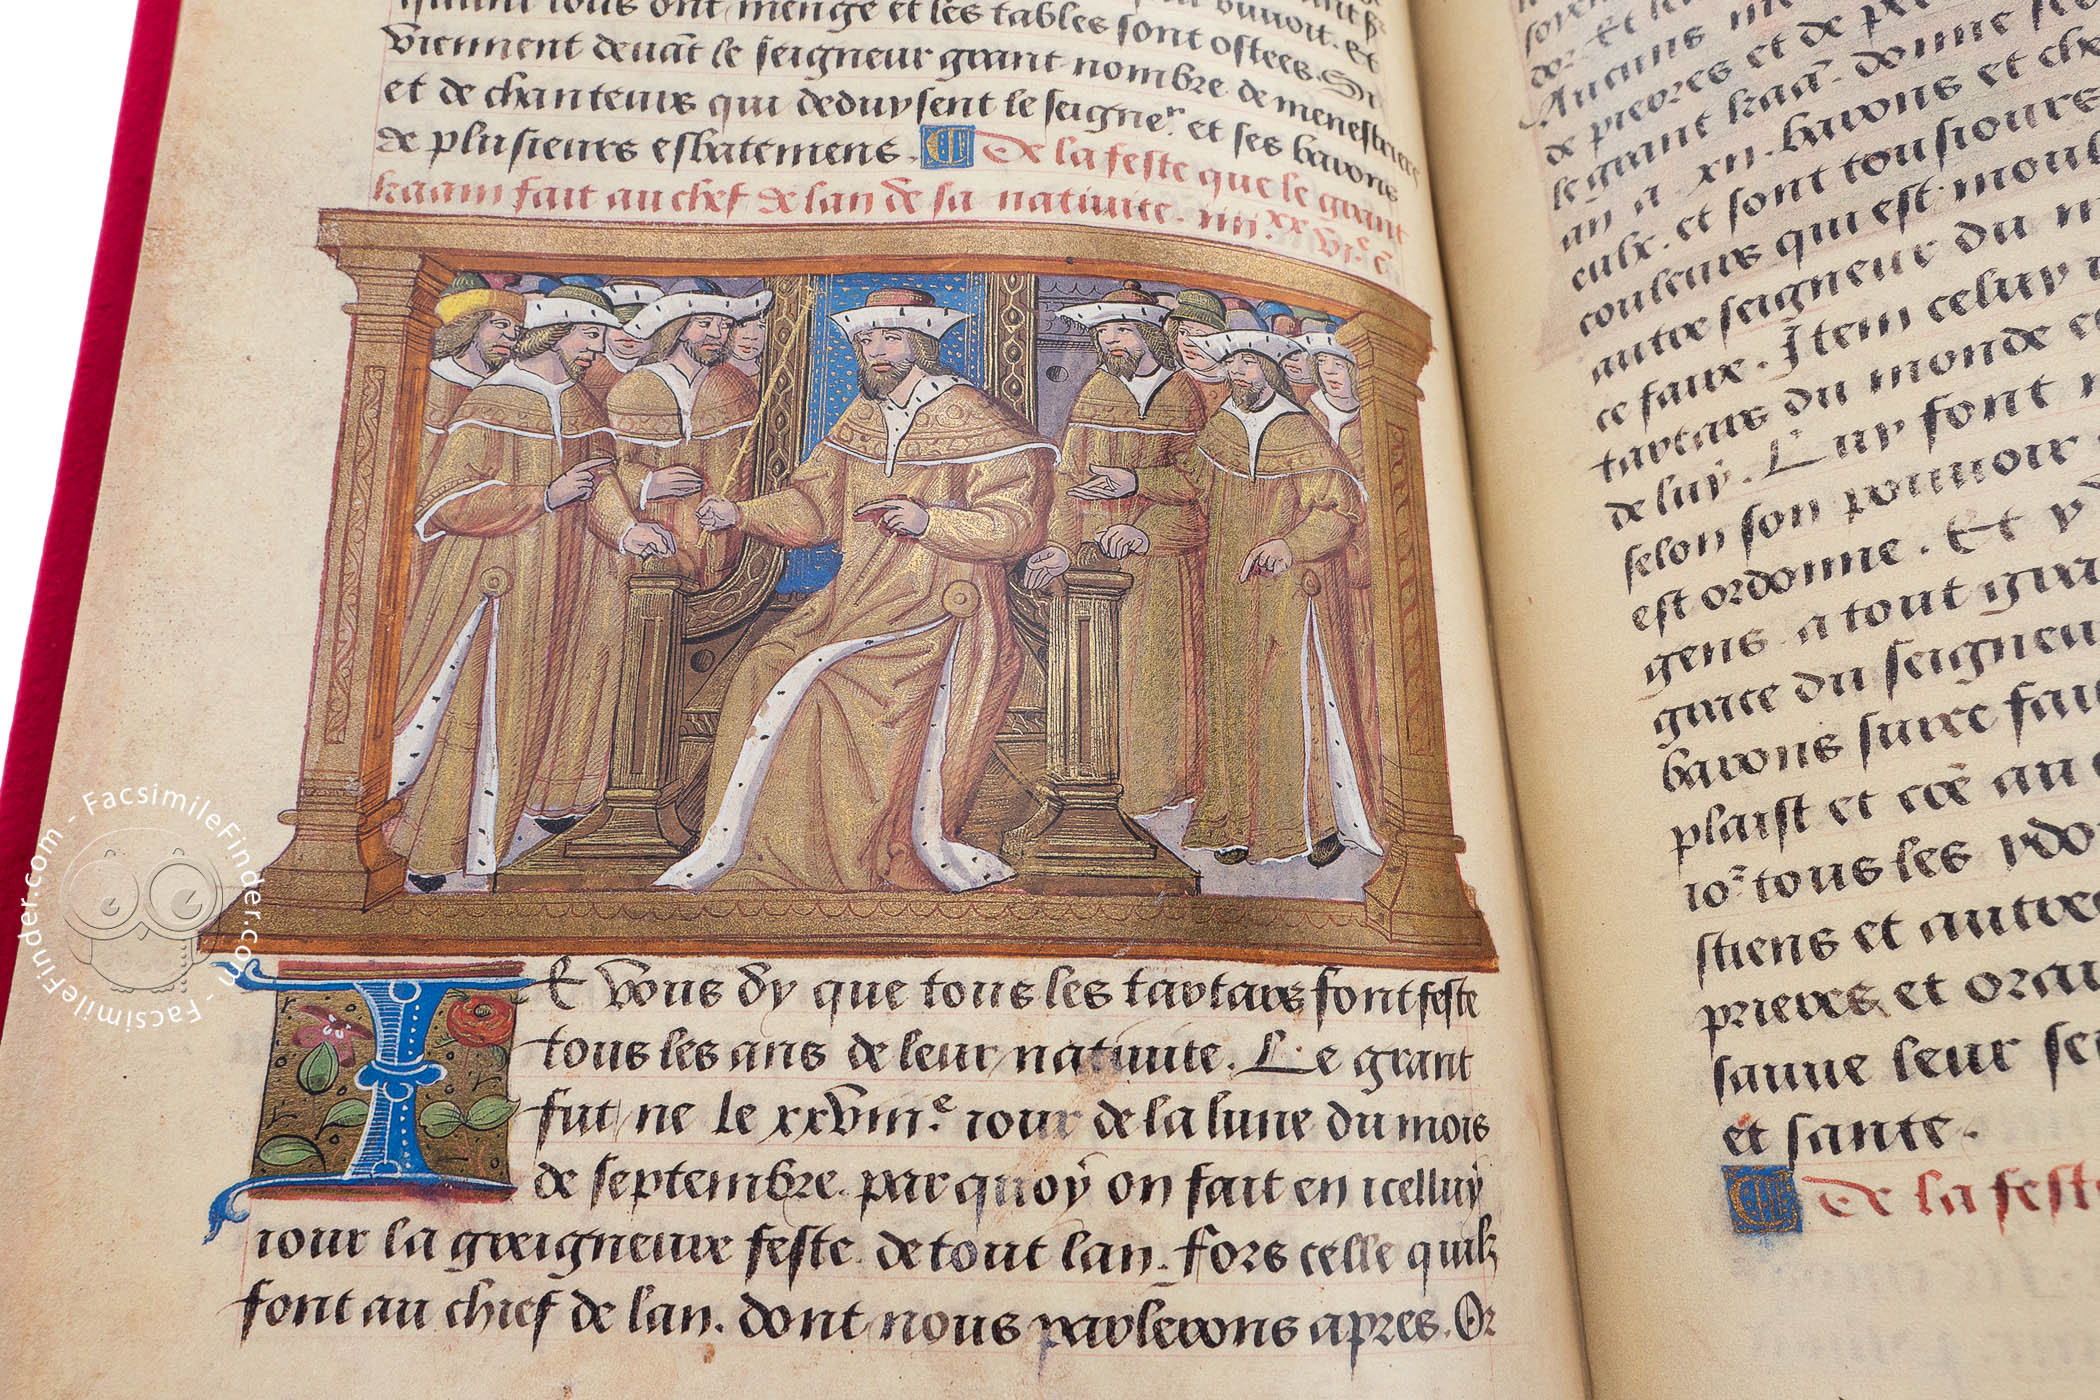 quant tous ont menge et les tables sont ostees. Si
viennent deuāt le seigneur grant nombre de menestriers
et de chanteurs qui deduysent le seigne.r et ses barons
de plusieurs esbatemens. De la feste que le grant
kaam fait au chef de lan de sa natiuite. iiii.xx vi.e c.
Ie vous dy que tous les tartars font feste
tous les ans de leur natiuite. Le grant
fut ne le xxviii.e iour de la lune du mois
de septembre. par quoy on fait en icelluy
iour la greigneure feste de tout lan. fors celle quilz
font au chief de lan. dont nous parlerons apres. Or
Aucuns
de preores et de
le grant kaā. donne
an a xii. barons et
eulx. et sont tousiours
couleurs qui est
autre seigneur du
ce faire. Item celuy
tartars du monde et
de luy. Luy font
selon son pouuoir
est ordonne. Et y
gens a tout
grace du seigneur
barons sur ce
plaist et cōe au
ior tous les ydo
stiens et autres
prieres et
sauue leur sei
et sante.
De la feste
FacsimileFinder.com - FacsimileFinder.com -